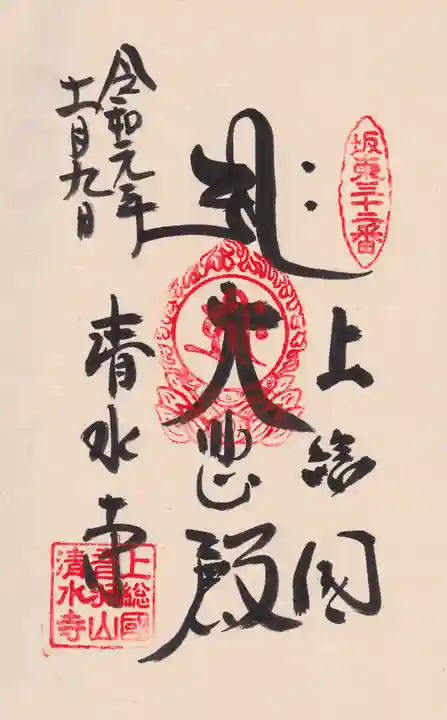 坂東三十二番
上総国
大悲殿
令和元年
十一月九日
清水寺
上総國
音羽山
清水寺